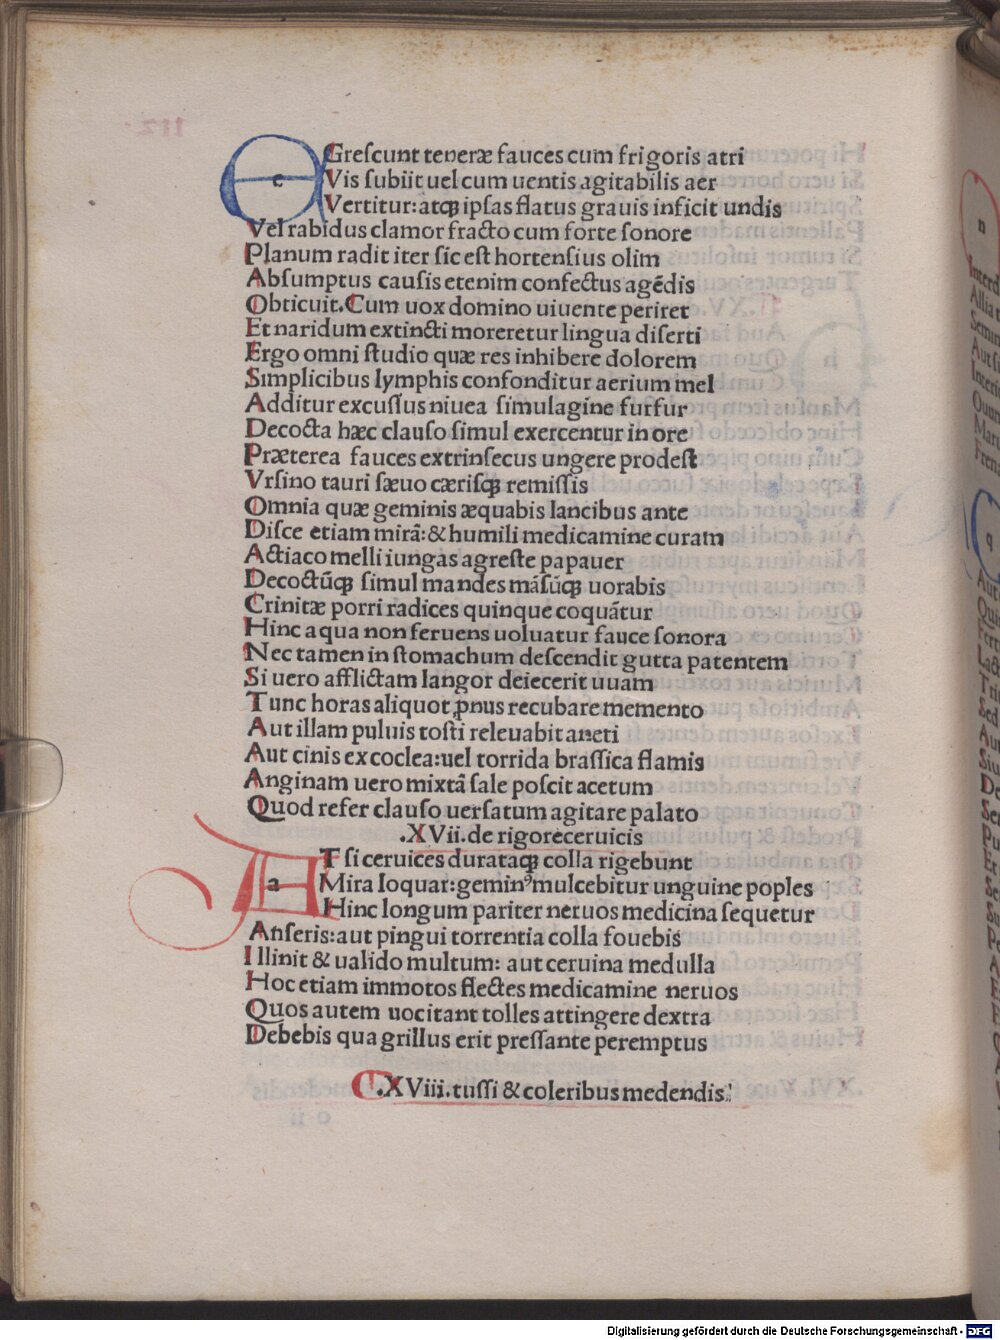 eGrescunt teneræ fauces cum frigoris atri
Vis subiit uel cum uentis agitabilis aer
Vertitur:atqȝ ipsas flatus grauis inficit undis
Vel rabidus clamor fracto cum forte sonore
Planum radit iter sic est hortensius olim
Absumptus causis etenim confectus agēdis
Obticuit.Cum uox domino uiuente periret
Et naridum extincti moreretur lingua diserti
Ergo omni studio quæ res inhibere dolorem
Simplicibus lymphis confonditur aerium mel
Additur excussus niuea simulagine furfur
Decocta hæc clauso simul exercentur in ore
Præterea fauces extrinsecus ungere prodest
Vrsino tauri sæuo cærisqȝ remissis
Omnia quæ geminis æquabis lancibus ante
Disce etiam mirā:& humili medicamine curam
Actiaco melli iungas agreste papauer
Decoctūqȝ simul mandes māsūqȝ uorabis
Crinitæ porri radices quinque coquātur
Hinc aqua non feruens uoluatur fauce sonora
Nec tamen in stomachum descendit gutta patentem
Si uero afflictam langor deiecerit uuam
Tunc horas aliquot ꝓnus recubare memento
Aut illam puluis tosti releuabit aneti
Aut cinis ex coclea:uel torrida brassica flamis
Anginam uero mixtā sale poscit acetum
Quod refer clauso uersatum agitare palato
.XVii.de rigore ceruicis
aT si ceruices durataqȝ colla rigebunt
Mira loquar:geminꝰ mulcebitur unguine poples
Hinc longum pariter neruos medicina sequetur
Anseris:aut pingui torrentia colla fouebis
Illinit & ualido multum: aut ceruina medulla
Hoc etiam immotos flectes medicamine neruos
Quos autem uocitant tolles attingere dextra
Debebis qua grillus erit pressante peremptus
.XViii.tussi & coleribus medendis.
n
Interd
Allia t
Semin
Aut si
Interi
q
Digitalisierung gefördert durch die Deutsche Forschungsgemeinschaft - DFG